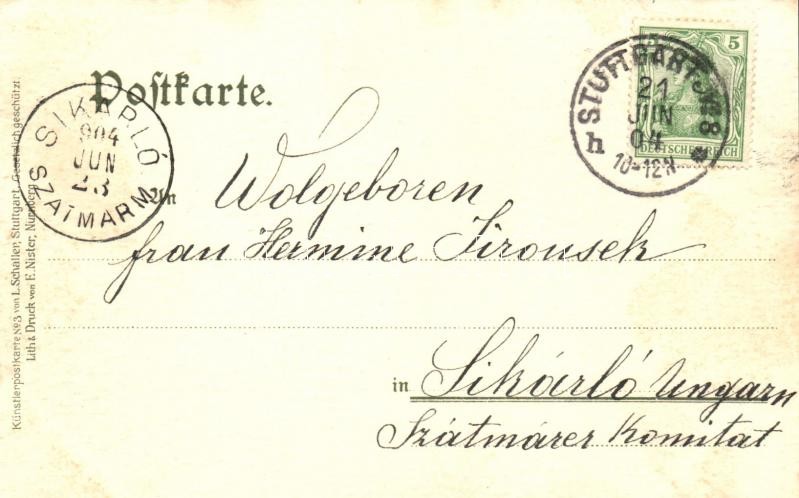 Postkarte.
5
DEUTSCHES REICH
STUTTGART №8
21
JUN
04
10-12N
h
SIKÁRLÓ
904
JUN
23
SZATMÁRM.
An
Wolgeboren
frau Hermine Jirousek
in Sikárló Ungarn
Szátmárer Komitat
Künstlerpostkarte №3 von L. Schaller, Stuttgart, Gesetzlich geschützt.
Lith & Druck von E. Nister, Nürnberg